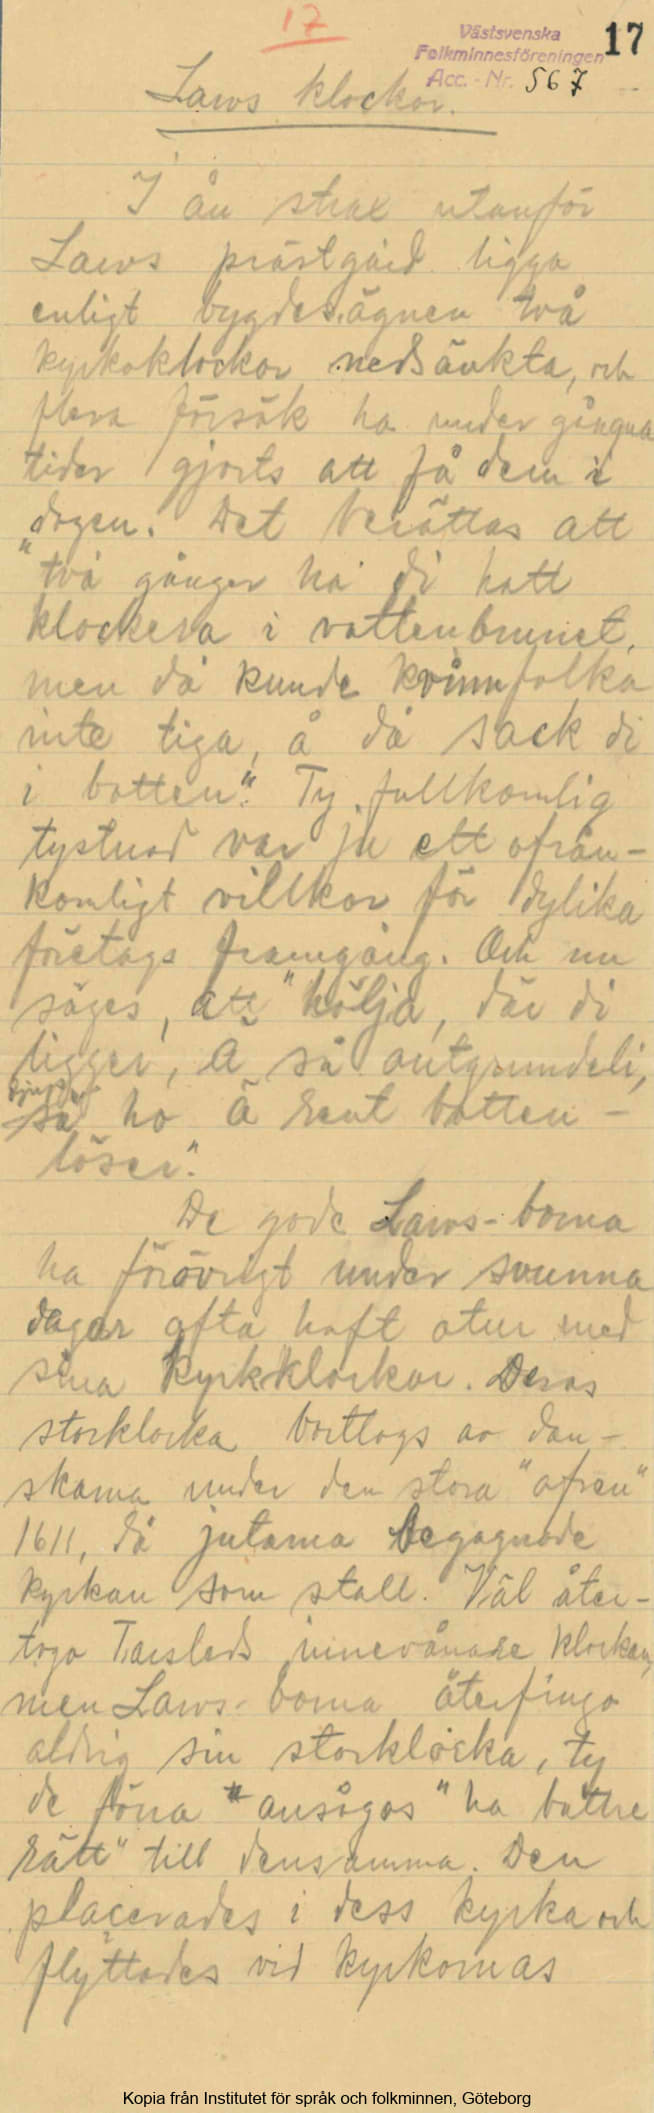 17
Västsvenska
Folkminnesföreningen
17
Acc. - Nr. 567
Laws klockor.
I ån strax utanför
Laws prästgård ligga
enligt bygdesägnen två
kyrkoklockor nedsänkta, och
flera försök ha under gångna
tider gjorts att få dem i
dagen. Det berättas att
"två gånger ha di hatt
klockera i vattenbrunet,
men då kunde kvinnfolka
inte tiga, å då sack di
i botten." Ty fullkomlig
tystnad var ju ett ofrån-
komligt villkor för dylika
företags framgång. Och nu
säges, att "hölja, där di
ligger, ä så outgrundeli,
djuper
så ho ä rent botten-
löser."
De gode Laws-borna
ha förövrigt under svunna
dagar ofta haft otur med
sina kyrkklockor. Deras
storklocka borttogs av dan-
skarna under den stora "ofren"
1611, då jutarna begagnade
kyrkan som stall. Väl åter-
togo Tarsleds innevånare klockan,
men Laws-borna återfingo
aldrig sin storklocka, ty
de förra ansågos "ha bättre
rätt" till densamma. Den
placerades i dess kyrka och
flyttades vid kyrkornas
Kopia från Institutet för språk och folkminnen, Göteborg